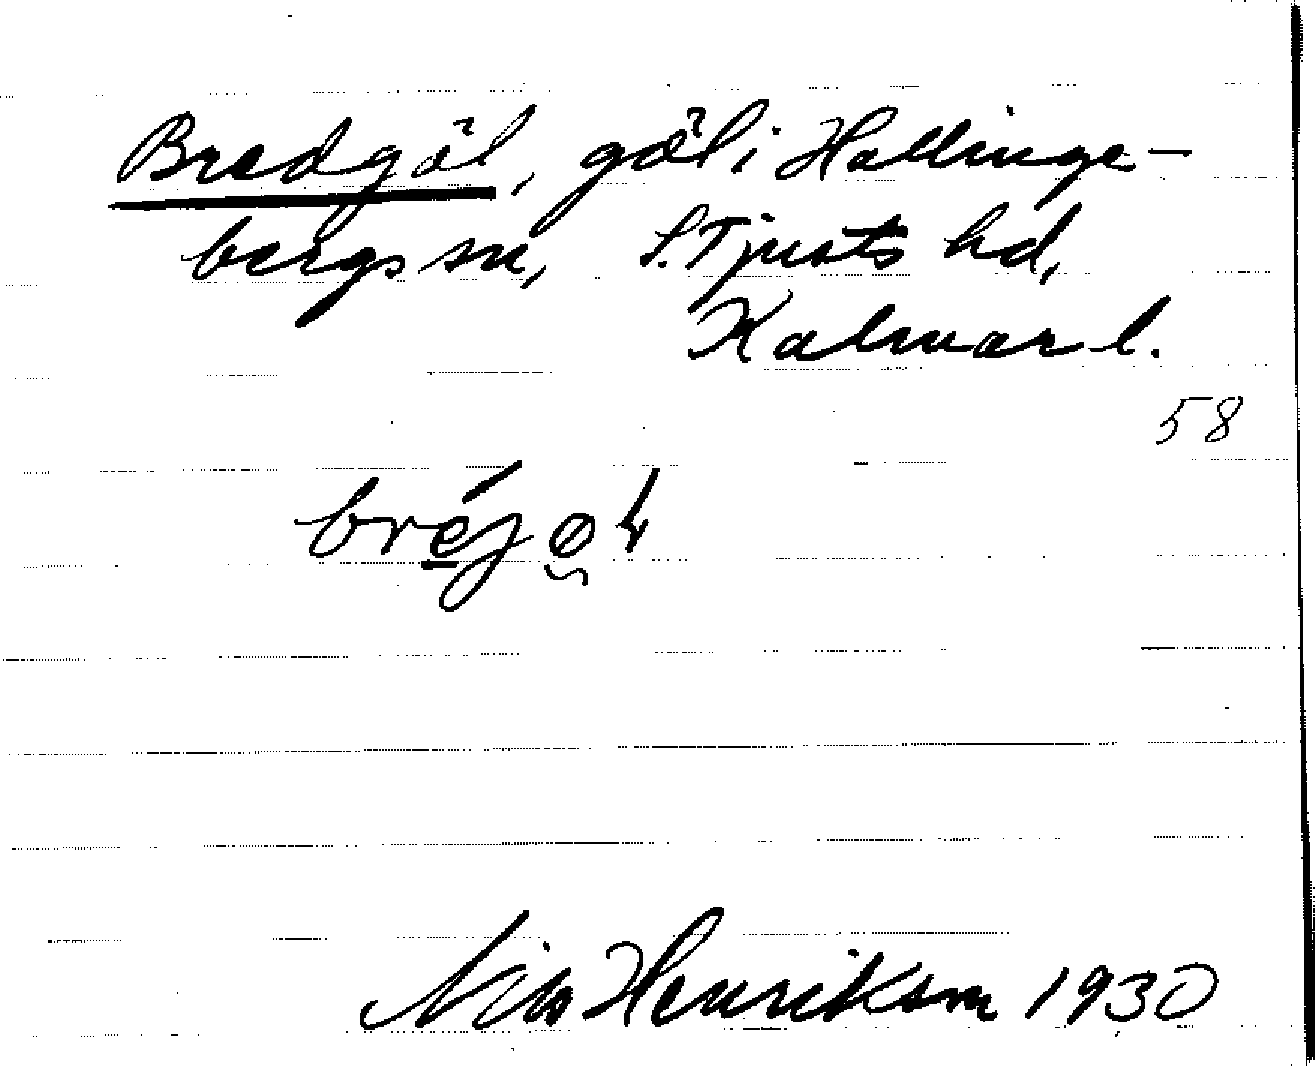 Bredgöl, göl i Hallinge-
bergs sn, S. Tjusts hd,
Kalmar l.
58
bréjøl
Nils Henrikson 1930